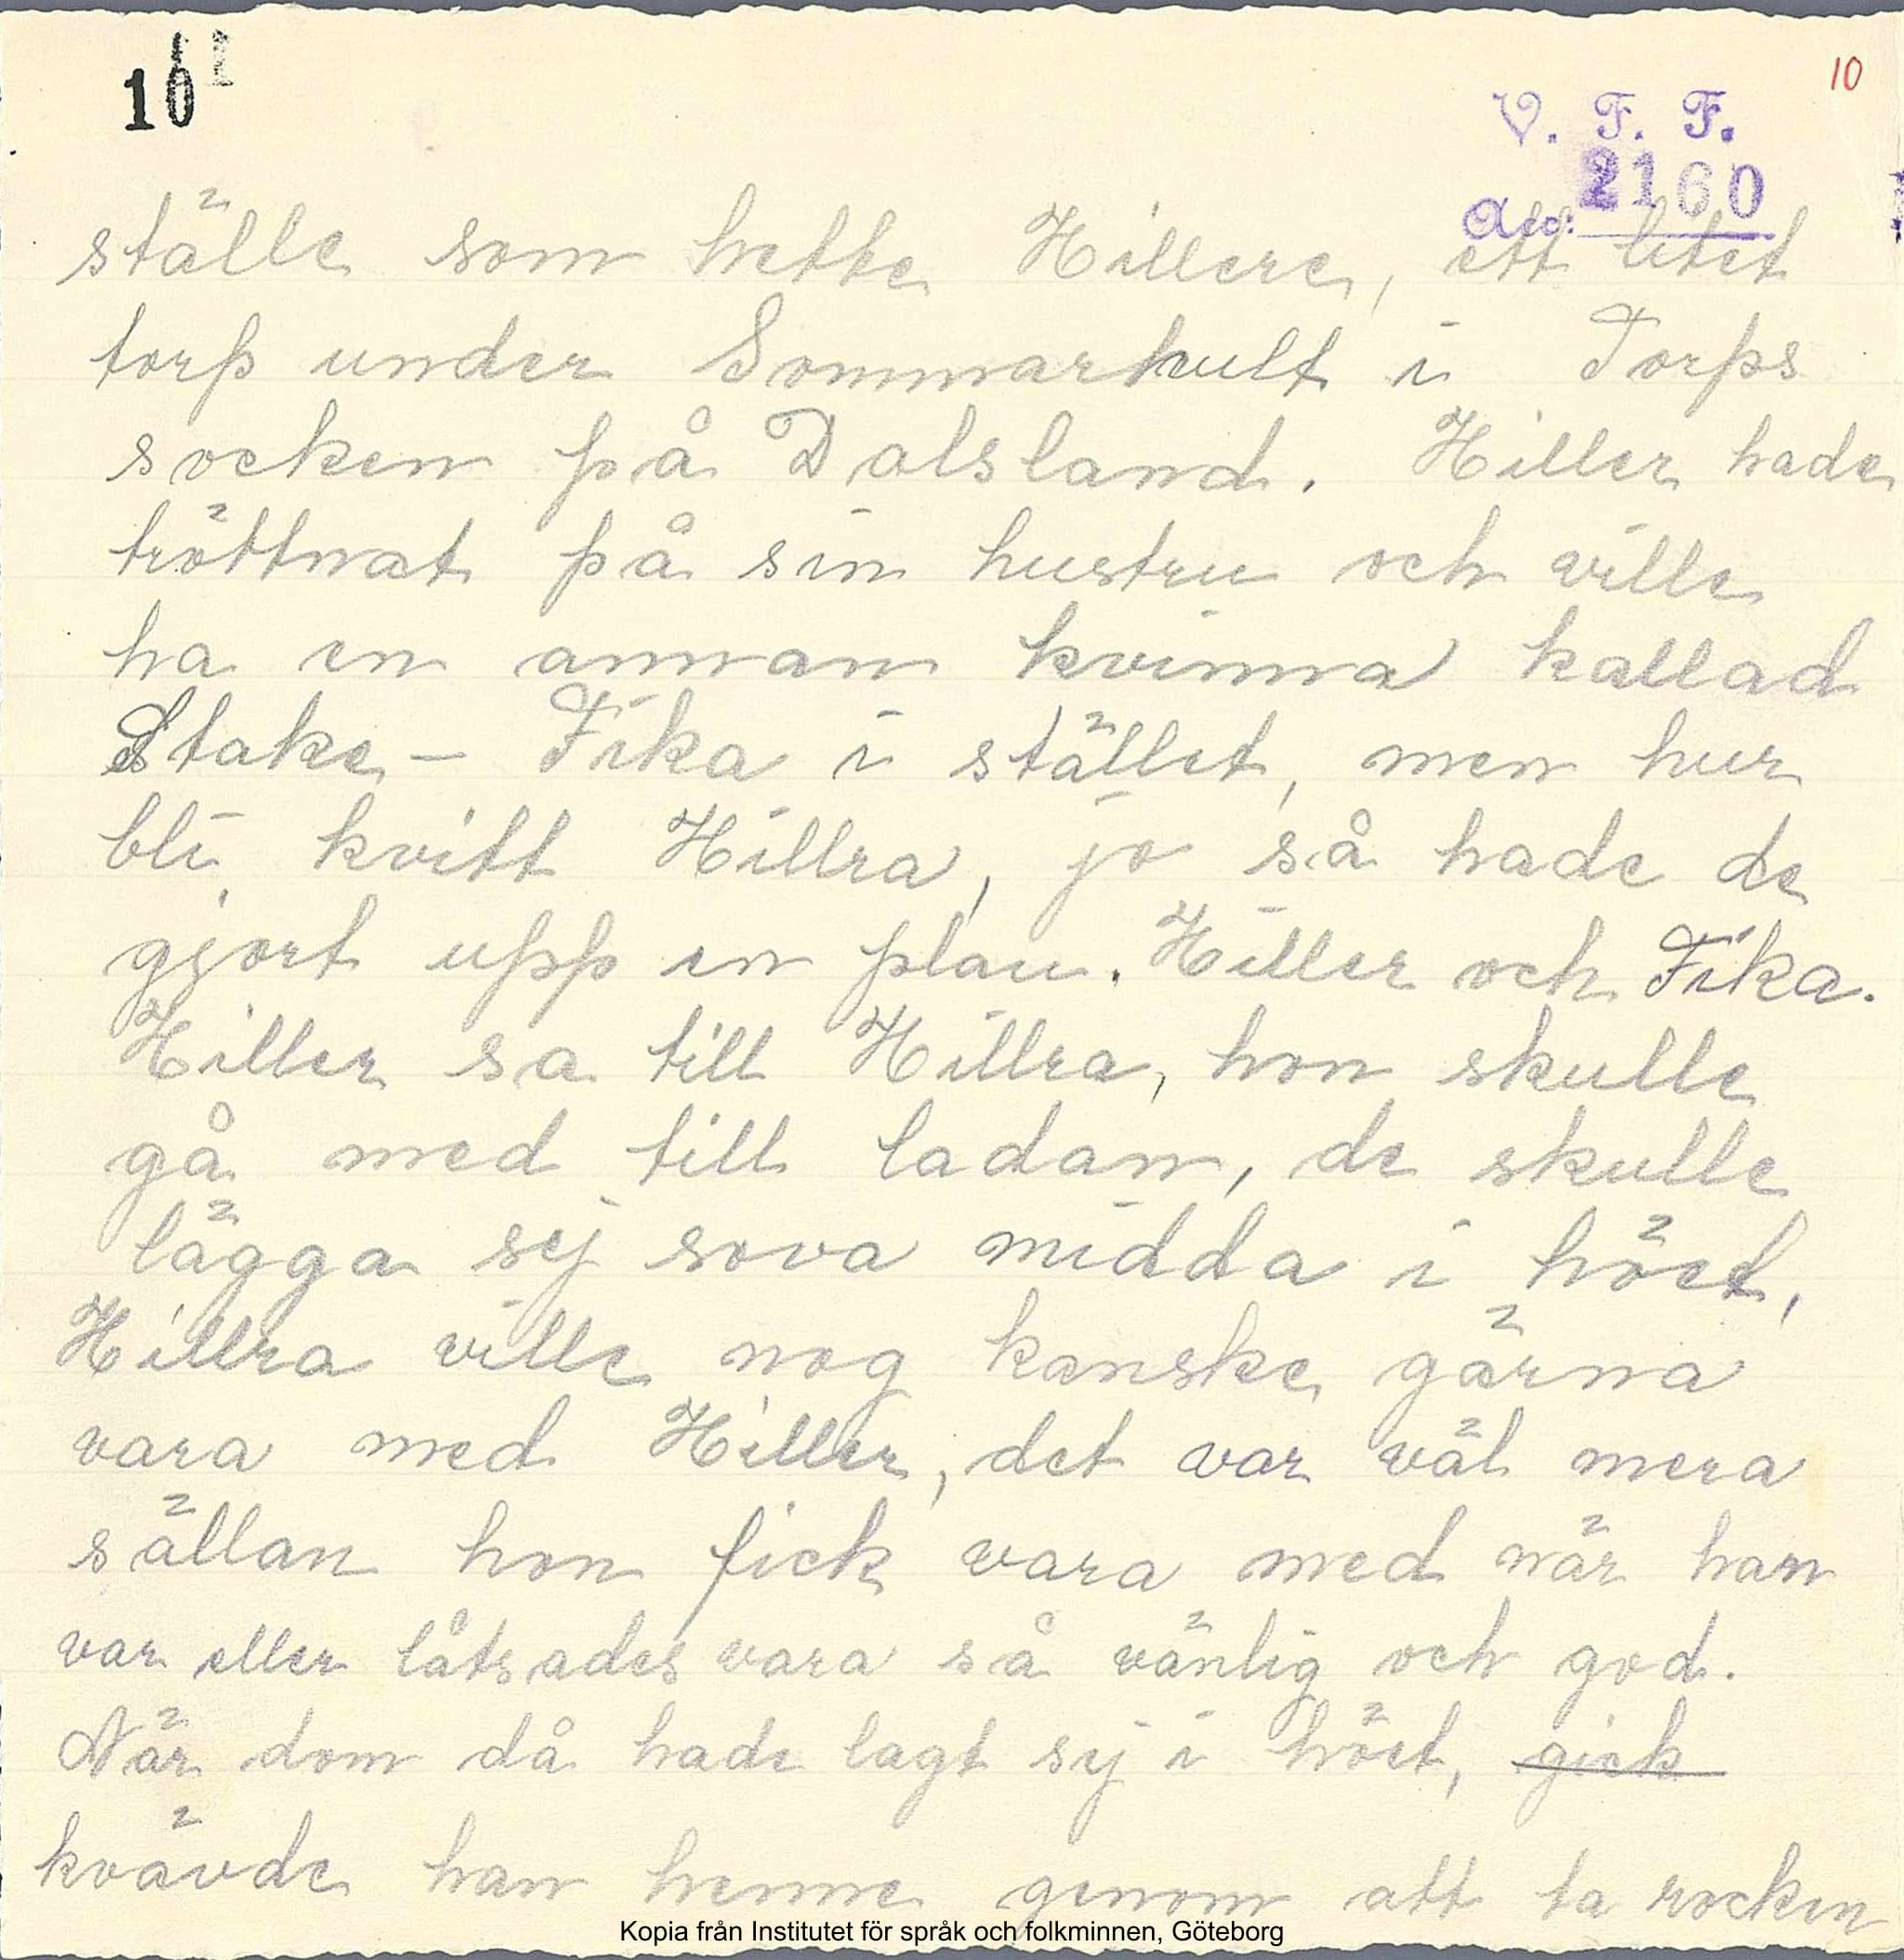 10
10
V. F. F.
2160
Acc:
ställe som hette Hillere, ett litet
torp under Sommarhult i Torps
socken på Dalsland. Hiller hade
tröttnat på sin hustru och ville
ha en annan kvinna kallad
Stake - Fika i stället, men hur
bli kvitt Hillra, jo så hade de
gjort upp en plan. Hiller och Fika.
Hiller sa till Hillra, hon skulle
gå med till ladan, de skulle
lägga sej sova midda i höet,
Hillra ville nog kanske gärna
vara med Hiller, det var väl mera
sällan hon fick vara med när han
var eller låtsades vara så vänlig och god.
När dom då hade lagt sej i höet, gick
kvävde han henne genom att ta rocken
Kopia från Institutet för språk och folkminnen, Göteborg